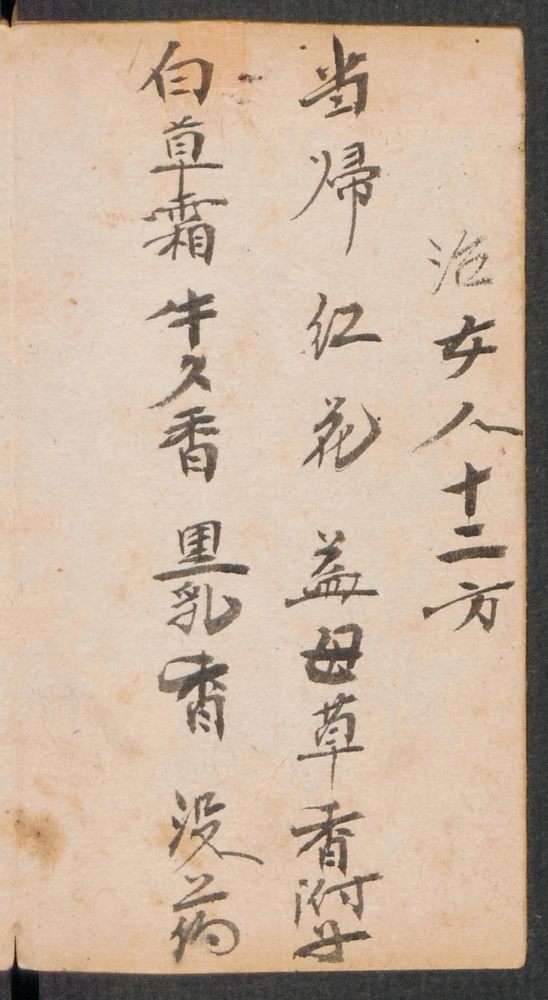 治女人十二方
当帰 红花 益母草 香附子
白草霜 牛久香 黑乳香 没药